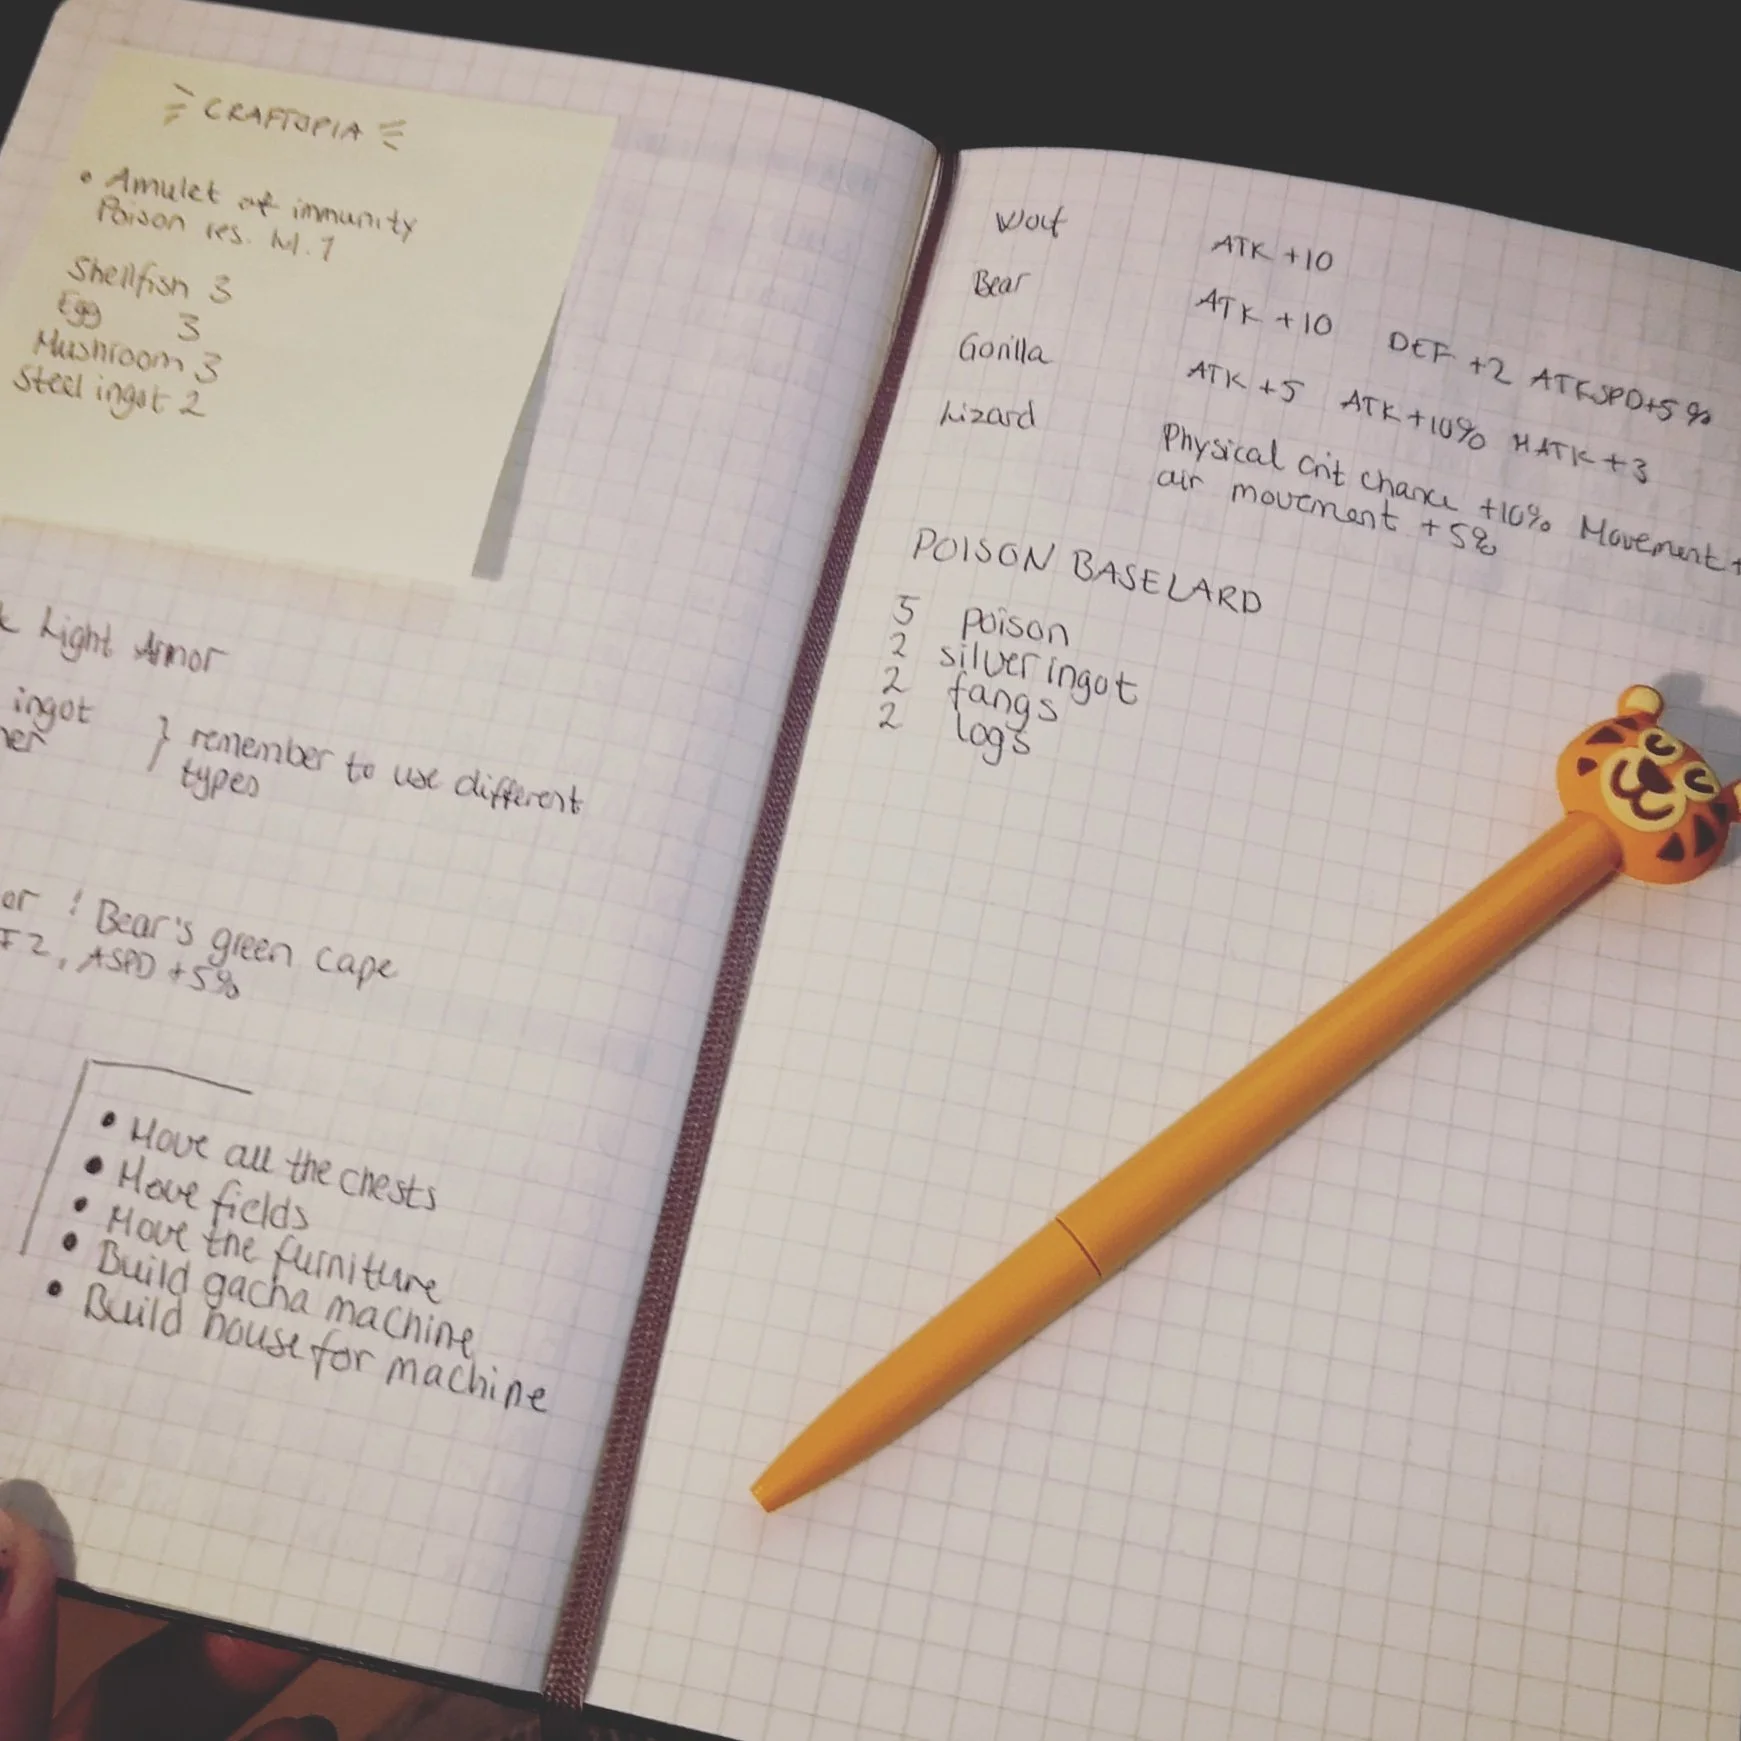 CRAFTOPIA
• Amulet of immunity
Poison res. lvl. 1
Shellfish 3
Egg 3
Mushroom 3
Steel ingot 2
Light Armor
ingot
remember to use different
types
! Bear's green cape
2, ASPD +5%
• Move all the chests
• Move fields
• Move the furniture
• Build gacha machine
• Build house for machine
Wolf ATK +10
Bear ATK +10 DEF +2 ATKSPD+5%
Gorilla ATK +5 ATK+10% MATK +3
Lizard Physical crit chance +10% Movement +
air movement +5%
POISON BASELARD
5 poison
2 silver ingot
2 fangs
2 logs